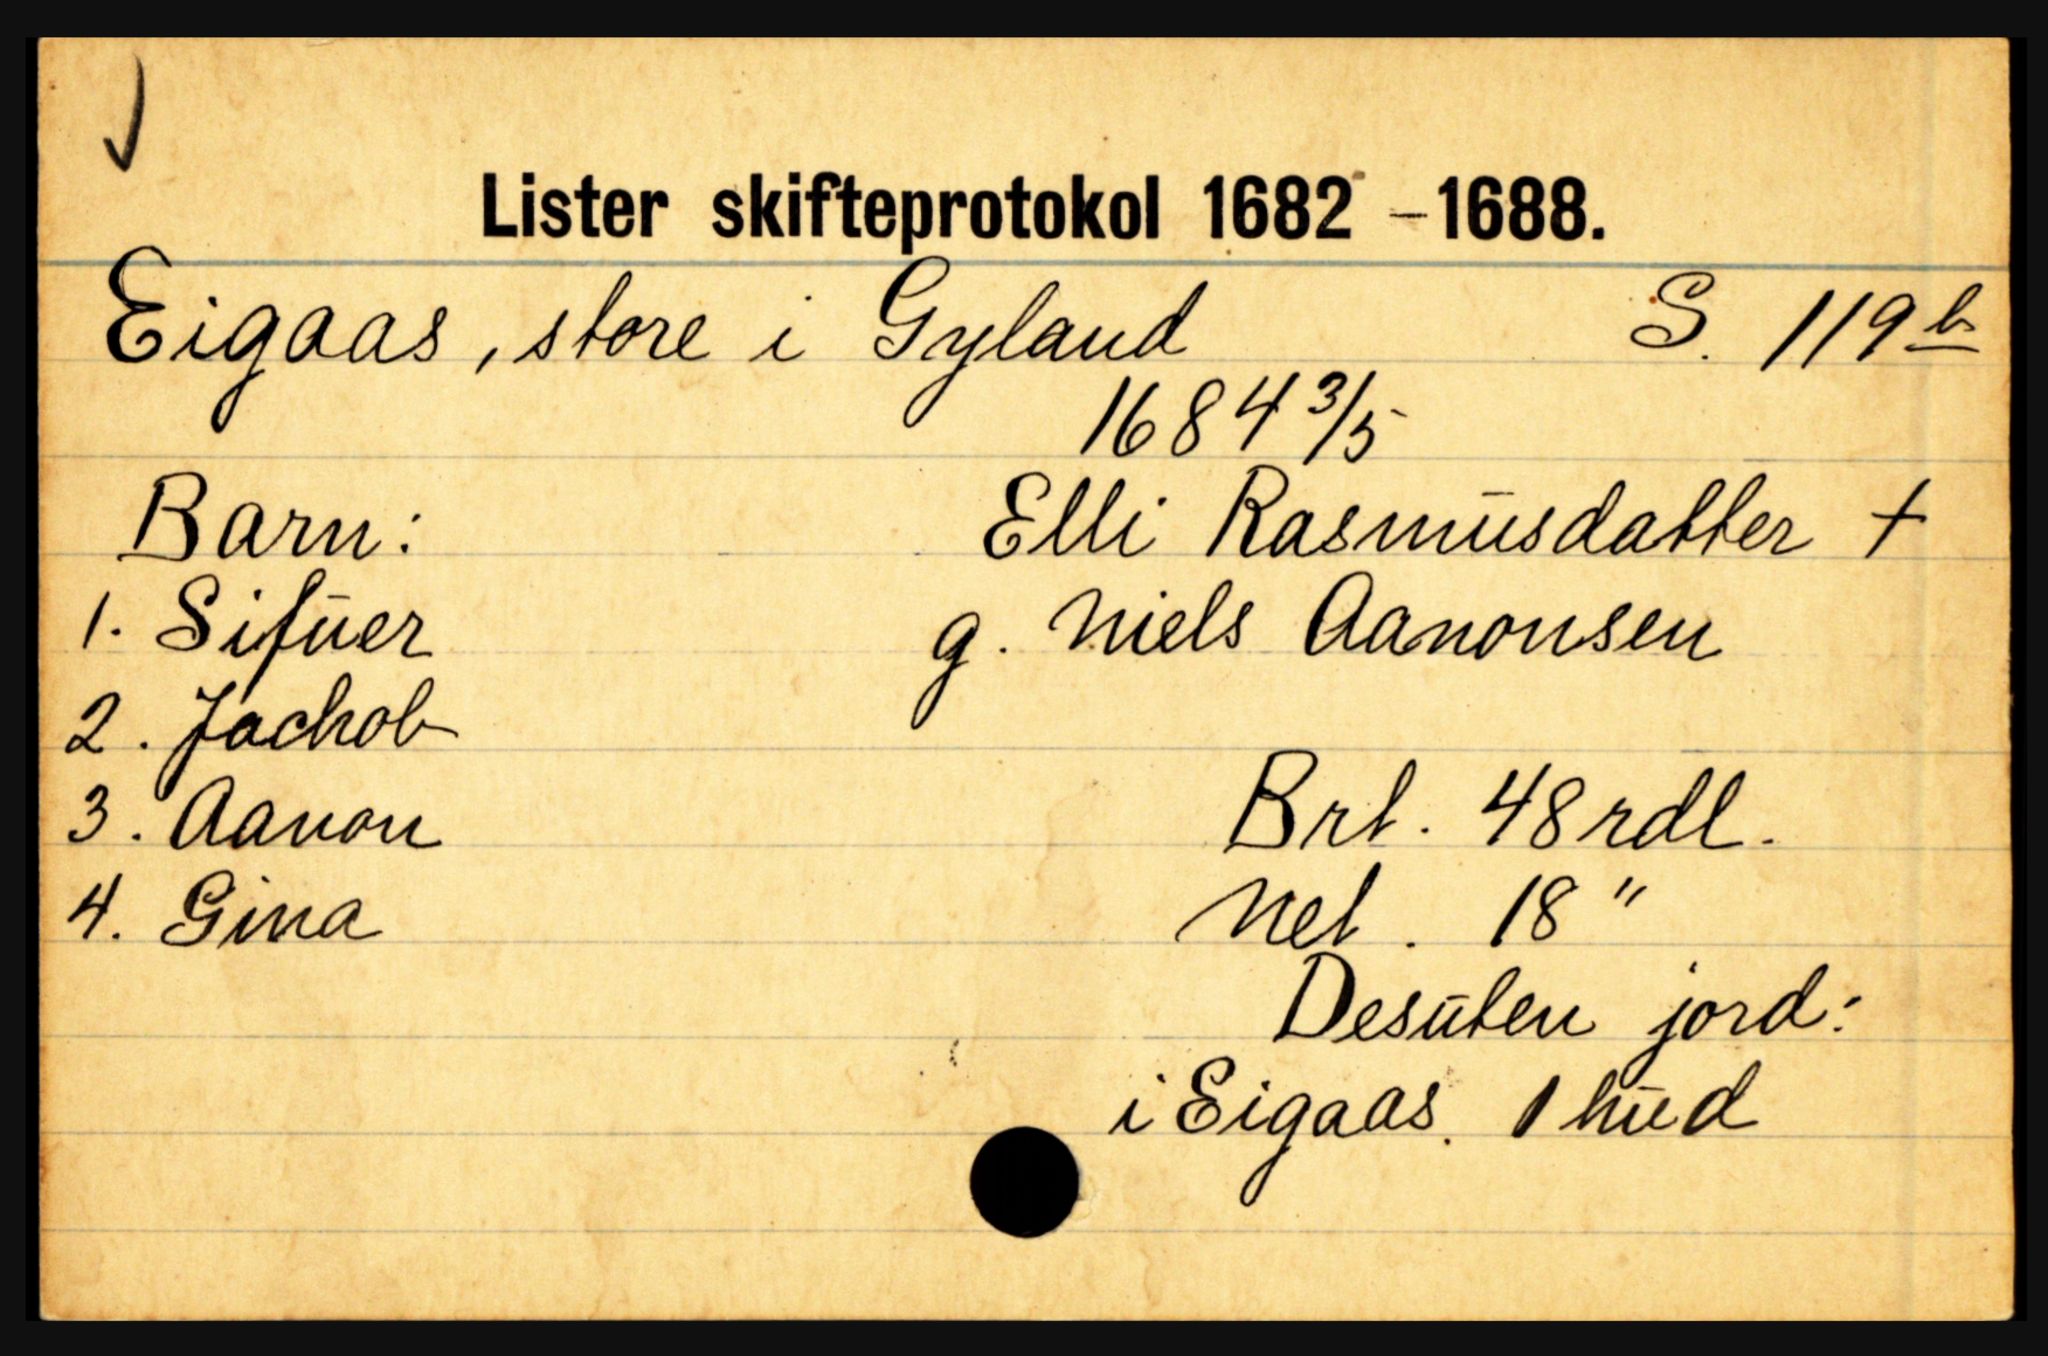 Lister skifteprotokol 1682 - 1688.
Eigaas, store i Gyland S. 119 b
1684 3/5
Barn: Elli Rasmusdatter †
1. Sifuer g. Niels Aanonsen
2. Jachob
3. Aanon Brt. 48 rdl.
4. Gina Net. 18 "
Desuten jord:
i Eigaas. 1 hud